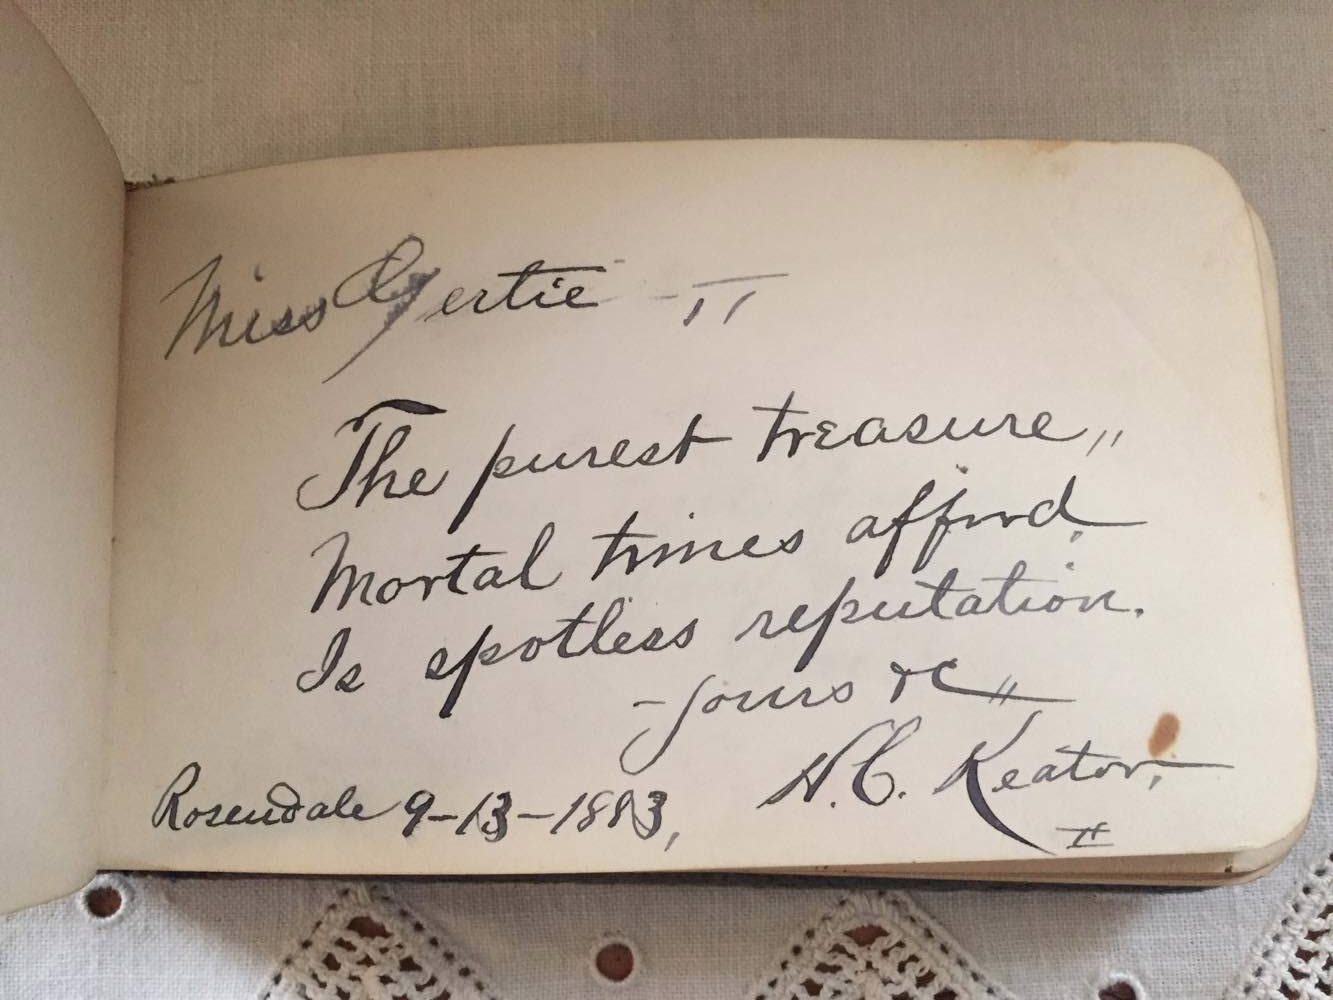 Miss Gertie -
The purest treasure,,
Mortal times afford.
Is spotless reputation.
-Yours &C,,
H.C. Keator.
Rosendale 9-13-1883,